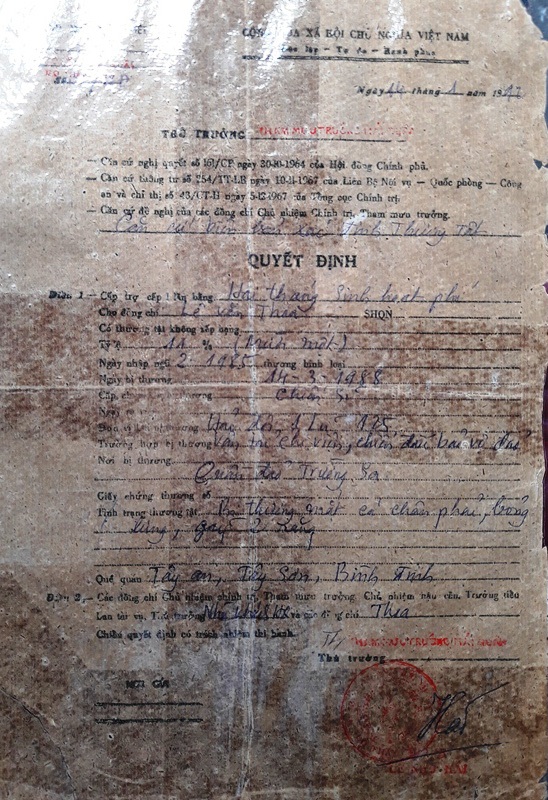 CỘNG HÒA XÃ HỘI CHỦ NGHĨA VIỆT NAM
Độc lập - Tự do - Hạnh phúc
Ngày tháng 1 năm 19
THỦ TRƯỞNG
— Căn cứ nghị quyết số 161/CP ngày 30-10-1964 của Hội đồng Chính phủ.
— Căn cứ thông tư số 254/TT-LB ngày 10-11-1967 của Liên Bộ Nội vụ — Quốc phòng — Công
an và chỉ thị số 43/CT-H ngày 5-12-1967 của Tổng cục Chính trị.
— Căn cứ đề nghị của các đồng chí Chủ nhiệm Chính trị, Tham mưu trưởng.
Căn cứ biên bản Thương tật
QUYẾT ĐỊNH
Điều 1 — Cấp trợ cấp 1 lần bằng Hai tháng Sinh hoạt phí
Cho đồng chí Lê văn Thoa SHQN
Có thương tật không xếp hạng
Tỷ lệ 11 % (Mười một)
Ngày nhập ngũ 2. 1985 thương binh loại
Ngày bị thương 14-3-1988
Cấp Chiến sĩ
Đơn vị khi bị thương Hải đội 1 Lữ 125
Trường hợp bị thương chi viện, chiến đấu bảo vệ đảo
Nơi bị thương
Quần đảo Trường Sa
Giấy chứng thương số
Tình trạng thương tật Bị thương mặt cổ chân phải,
lưng, gãy 2 răng
Quê quán Tây an, Tây Sơn, Bình Định
Điều 2.- Các đồng chí Chủ nhiệm chính trị, Tham mưu trưởng, Chủ nhiệm hậu cần, Trưởng tiểu
ban tài vụ, Thủ trưởng và các đồng chí Thoa
Chiếu quyết định có trách nhiệm thi hành.
Thủ trưởng
NƠI GỬI